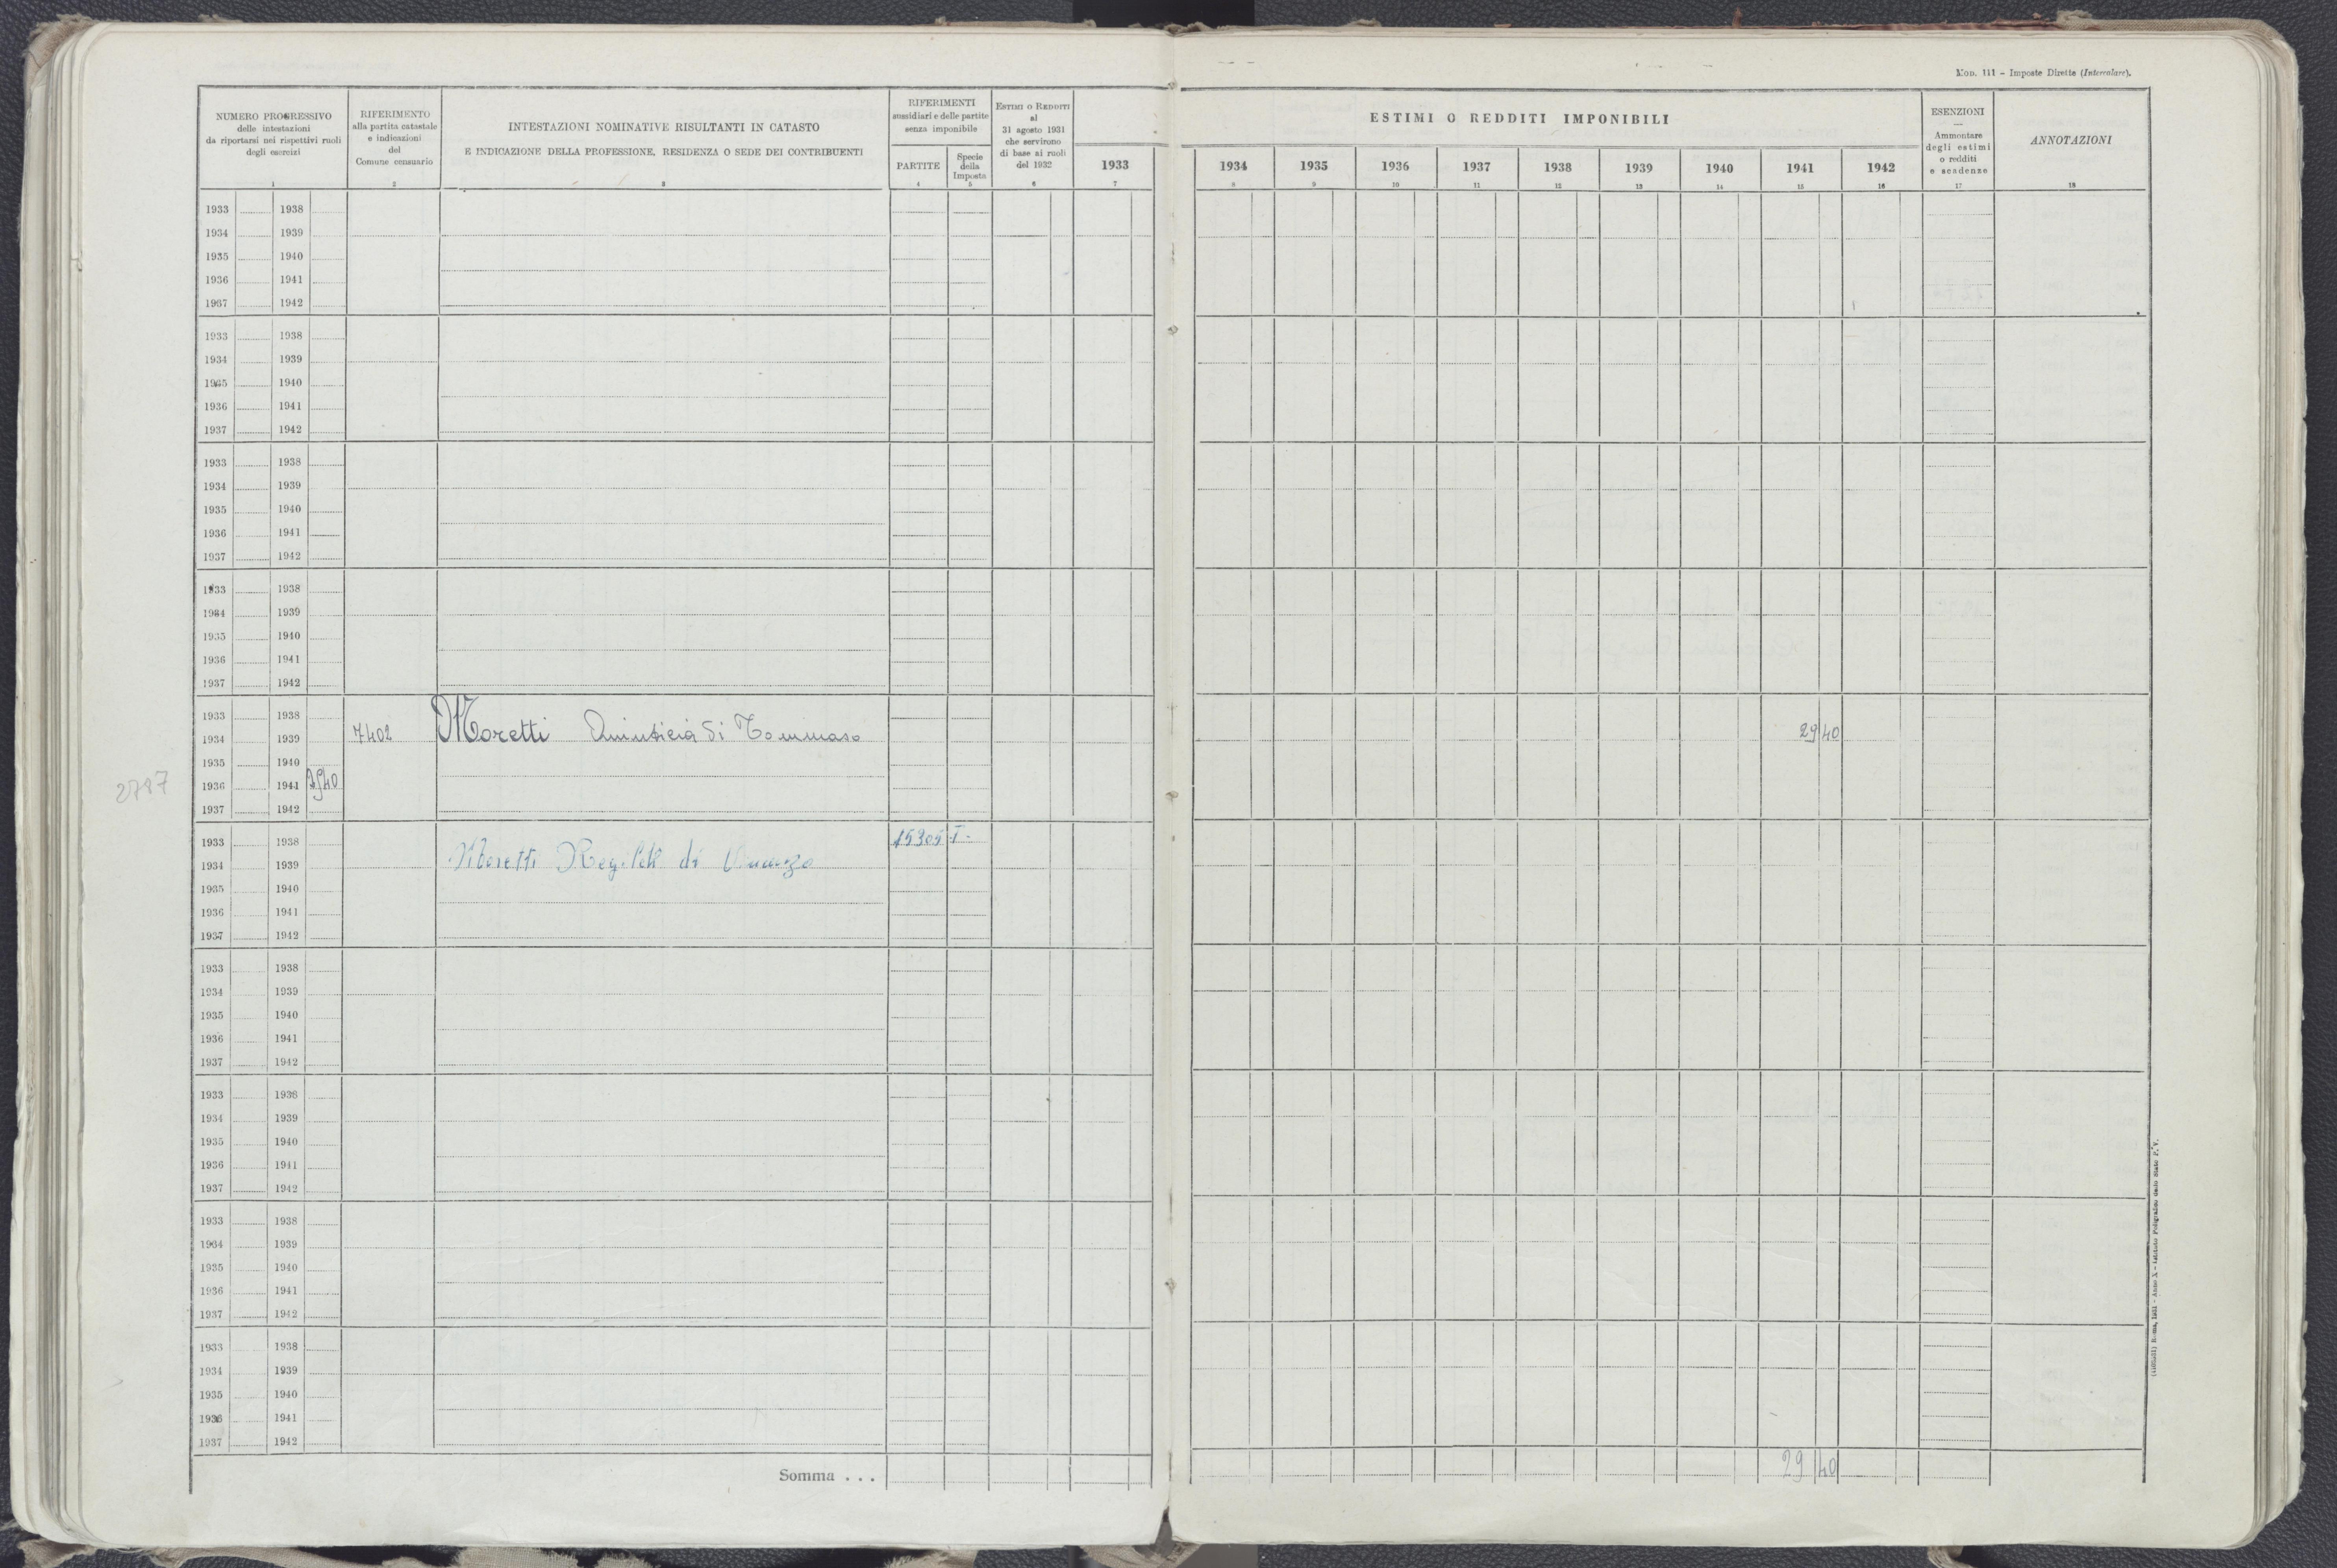 MOD. 111 - Imposte Dirette (Intercalare).
NUMERO PROGRESSIVO
delle intestazioni
da riportarsi nei rispettivi ruoli
degli esercizi
1
RIFERIMENTO
alla partita catastale
e indicazioni
del
Comune censuario
2
INTESTAZIONI NOMINATIVE RISULTANTI IN CATASTO
E INDICAZIONE DELLA PROFESSIONE, RESIDENZA O SEDE DEI CONTRIBUENTI
3
RIFERIMENTI
sussidiari e delle partite
senza imponibile
PARTITE
4
Specie
della
Imposta
5
ESTIMI O REDDITI
al
31 agosto 1931
che servirono
di base ai ruoli
del 1932
6
1933
7
ESTIMI O REDDITI IMPONIBILI
1934 1935 1936 1937 1938 1939 1940 1941 1942
8 9 10 11 12 13 14 15 16
ESENZIONI
Ammontare
degli estimi
o redditi
e scadenze
17
ANNOTAZIONI
18
1933 1938
1934 1939
1935 1940
1936 1941
1937 1942
1933 1938
1934 1939
1935 1940
1936 1941
1937 1942
1933 1938
1934 1939
1935 1940
1936 1941
1937 1942
1933 1938
1934 1939
1935 1940
1936 1941
1937 1942
1933 1938
1934 1939 7402 Moretti di Tommaso 29 40
1935 1940
1936 1941
1937 1942
1933 1938 15305 I
1934 1939 Moretti di
1935 1940
1936 1941
1937 1942
1933 1938
1934 1939
1935 1940
1936 1941
1937 1942
1933 1938
1934 1939
1935 1940
1936 1941
1937 1942
1933 1938
1934 1939
1935 1940
1936 1941
1937 1942
1933 1938
1934 1939
1935 1940
1936 1941
1937 1942
Somma . . . 29 40